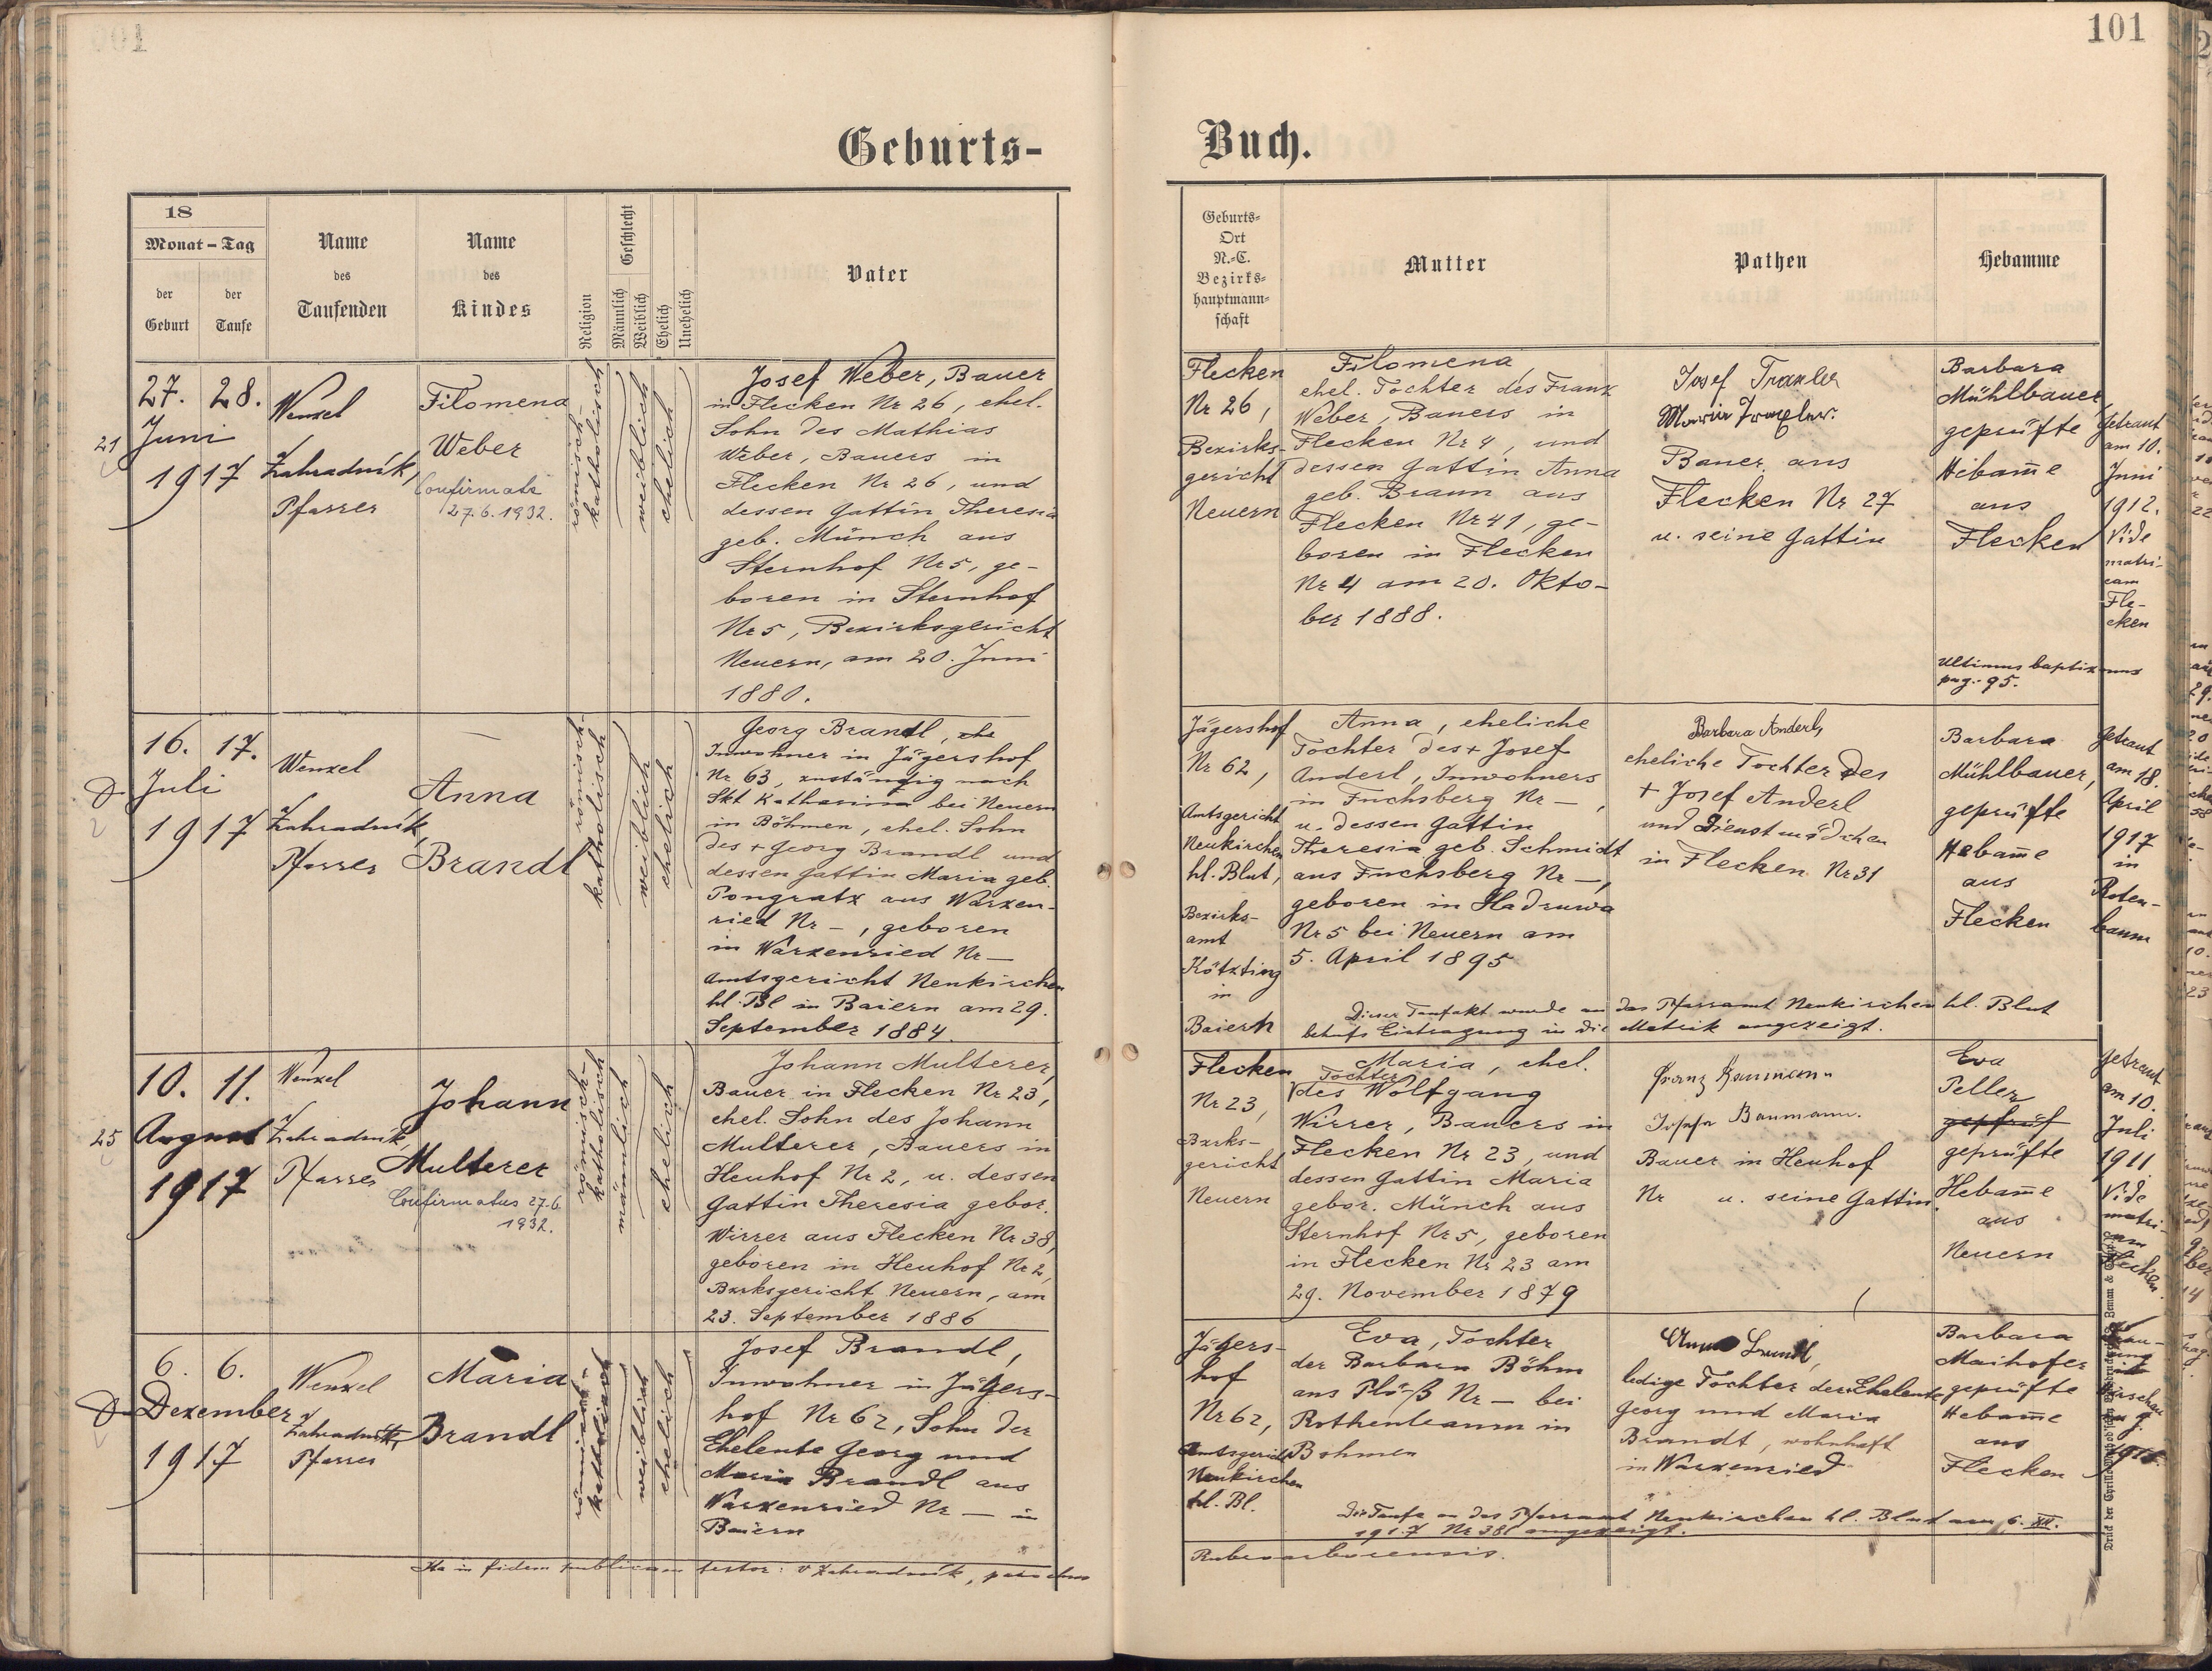 101
Geburts-
Buch.
18
Monat - Tag
der
Geburt
der
Taufe
Name
des
Taufenden
Name
des
Kindes
Religion
Geschlecht
Männlich
Weiblich
Ehelich
Unehelich
Vater
Geburts-
Ort
N.-C.
Bezirks-
hauptmann-
schaft
Mutter
Pathen
Hebamme
21
27. 28.
Juni
1917
Wenzel
Zahradník,
Pfarrer
Filomena
Weber
Confirmata
27.6.1932.
römisch-
katholisch
weiblich
ehelich
Josef Weber, Bauer
in Flecken Nr 26, ehel.
Sohn des Mathias
Weber, Bauers in
Flecken Nr 26, und
dessen Gattin Theresia
geb. Münch aus
Sternhof Nr 5, ge-
boren in Sternhof
Nr 5, Bezirksgericht
Neuern, am 20. Juni
1880.
Flecken
Nr 26,
Bezirks-
gericht
Neuern
Filomena,
ehel. Tochter des Franz
Weber, Bauers in
Flecken Nr 4, und
dessen Gattin Anna
geb. Braun aus
Flecken Nr 41, ge-
boren in Flecken
Nr 4 am 20. Okto-
ber 1888.
Josef Traxler
Maria Traxler.
Bauer aus
Flecken Nr 27
u. seine Gattin
Barbara
Mühlbauer,
geprüfte
Hebam̄e
aus
Flecken
Getraut
am 10.
Juni
1912.
Vide
matri-
cam
Fle-
cken
Ultimus baptizmus
pag. 95.
16. 17.
Juli
1917
Wenzel
Zahradník,
Pfarrer
Anna
Brandl
römisch-
katholisch
weiblich
ehelich
Georg Brandl,
Inwohner in Jägershof
Nr 63, zuständig nach
Skt Katharina bei Neuern
in Böhmen, ehel. Sohn
des + Georg Brandl und
dessen Gattin Maria geb.
Pongratz aus Warzen-
ried Nr –, geboren
in Warzenried Nr –
Amtsgericht Neukirchen
hl. Bl in Baiern am 29.
September 1884.
Jägershof
Nr 62,
Amtsgericht
Neukirchen
hl. Blut,
Bezirks-
amt
Kötzting
in
Baiern
Anna, eheliche
Tochter des + Josef
Anderl, Inwohners
in Fuchsberg Nr –,
u. dessen Gattin
Theresia geb. Schmidt
aus Fuchsberg Nr –,
geboren in Hadruwa
Nr 5 bei Neuern am
5. April 1895
Barbara Anderl,
eheliche Tochter des
+ Josef Anderl
und Dienstmädchen
in Flecken Nr 31
Barbara
Mühlbauer,
geprüfte
Hebam̄e
aus
Flecken
Getraut
am 18.
April
1917
in
Roten-
baum
Dieser Taufakt wurde an das Pfarramt Neukirchen hl. Blut
behufs Eintragung in die Matrik angezeigt.
25
10. 11.
August
1917
Wenzel
Zahradník,
Pfarrer
Johann
Multerer
Confirmatus 27.6.
1932.
römisch-
katholisch
männlich
ehelich
Johann Multerer,
Bauer in Flecken Nr 23,
ehel. Sohn des Johann
Multerer, Bauers in
Heuhof Nr 2, u. dessen
Gattin Theresia gebor.
Wirrer aus Flecken Nr 38,
geboren in Heuhof Nr 2,
Bzrksgericht Neuern, am
23. September 1886
Flecken
Nr 23,
Bzrks-
gericht
Neuern
Maria, ehel.
Tochter
des Wolfgang
Wirrer, Bauers in
Flecken Nr 23, und
dessen Gattin Maria
gebor. Münch aus
Sternhof Nr 5, geboren
in Flecken Nr 23 am
29. November 1879
Franz Baumann
Josefa Baumann.
Bauer in Heuhof
Nr u. seine Gattin
Eva
Peller
geprüf
geprüfte
Hebam̄e
aus
Neuern
Getraut
am 10.
Juli
1911
Vide
matri-
cam
Flecken.
6. 6.
Dezember
1917
Wenzel
Zahradník,
Pfarrer
Maria
Brandl
römisch-
katholisch
weiblich
ehelich
Josef Brandl,
Inwohner in Jägers-
hof Nr 62, Sohn der
Eheleute Georg und
Maria Brandl aus
Warzenried Nr – in
Baiern
Jägers-
hof
Nr 62,
Amtsgericht
Neukirchen
hl. Bl.
Eva, Tochter
der Barbara Böhm
aus Plöß Nr – bei
Rothenbaum in
Böhmen
Anna Brandl,
ledige Tochter der Eheleute
Georg und Maria
Brandt, wohnhaft
in Warzenried
Barbara
Maihofer
geprüfte
Hebam̄e
aus
Flecken
Die Taufe an das Pfarramt Neukirchen hl. Blut am 6. XII.
1917 Nr 381 angezeigt.
Ita in fidem publicam testor: V Zahradník, parochus
Rubroarborensis.